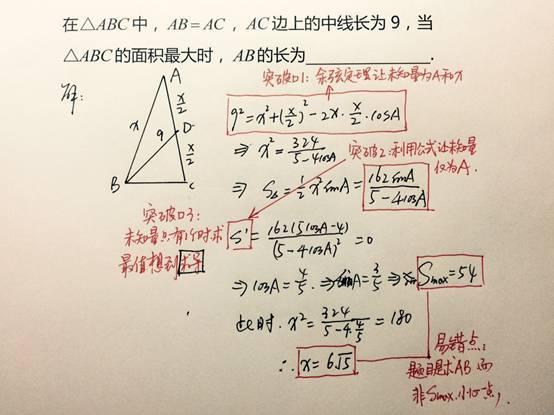 在△ABC中，AB=AC，AC边上的中线长为9，当
△ABC的面积最大时，AB的长为____________.
突破口1：余弦定理让未知量为A和x
解：
A
x
x/2
9
D
x/2
B
C
9²=x²+(x/2)²-2x·x/2·cosA
⇒ x²=324/(5-4cosA)
突破2：利用公式让未知量
仅为A.
⇒ S△=1/2x²sinA=162sinA/(5-4cosA)
突破口3：
未知量只有1个时求
最值想到求导
S'=162(5cosA-4)/(5-4cosA)²=0
⇒cosA=4/5 ⇒sinA=3/5 ⇒ Smax=54
此时. x²=324/(5-4·4/5)=180
∴ x=6√5
易错点：
题目是求AB而
非Smax.小心一点，